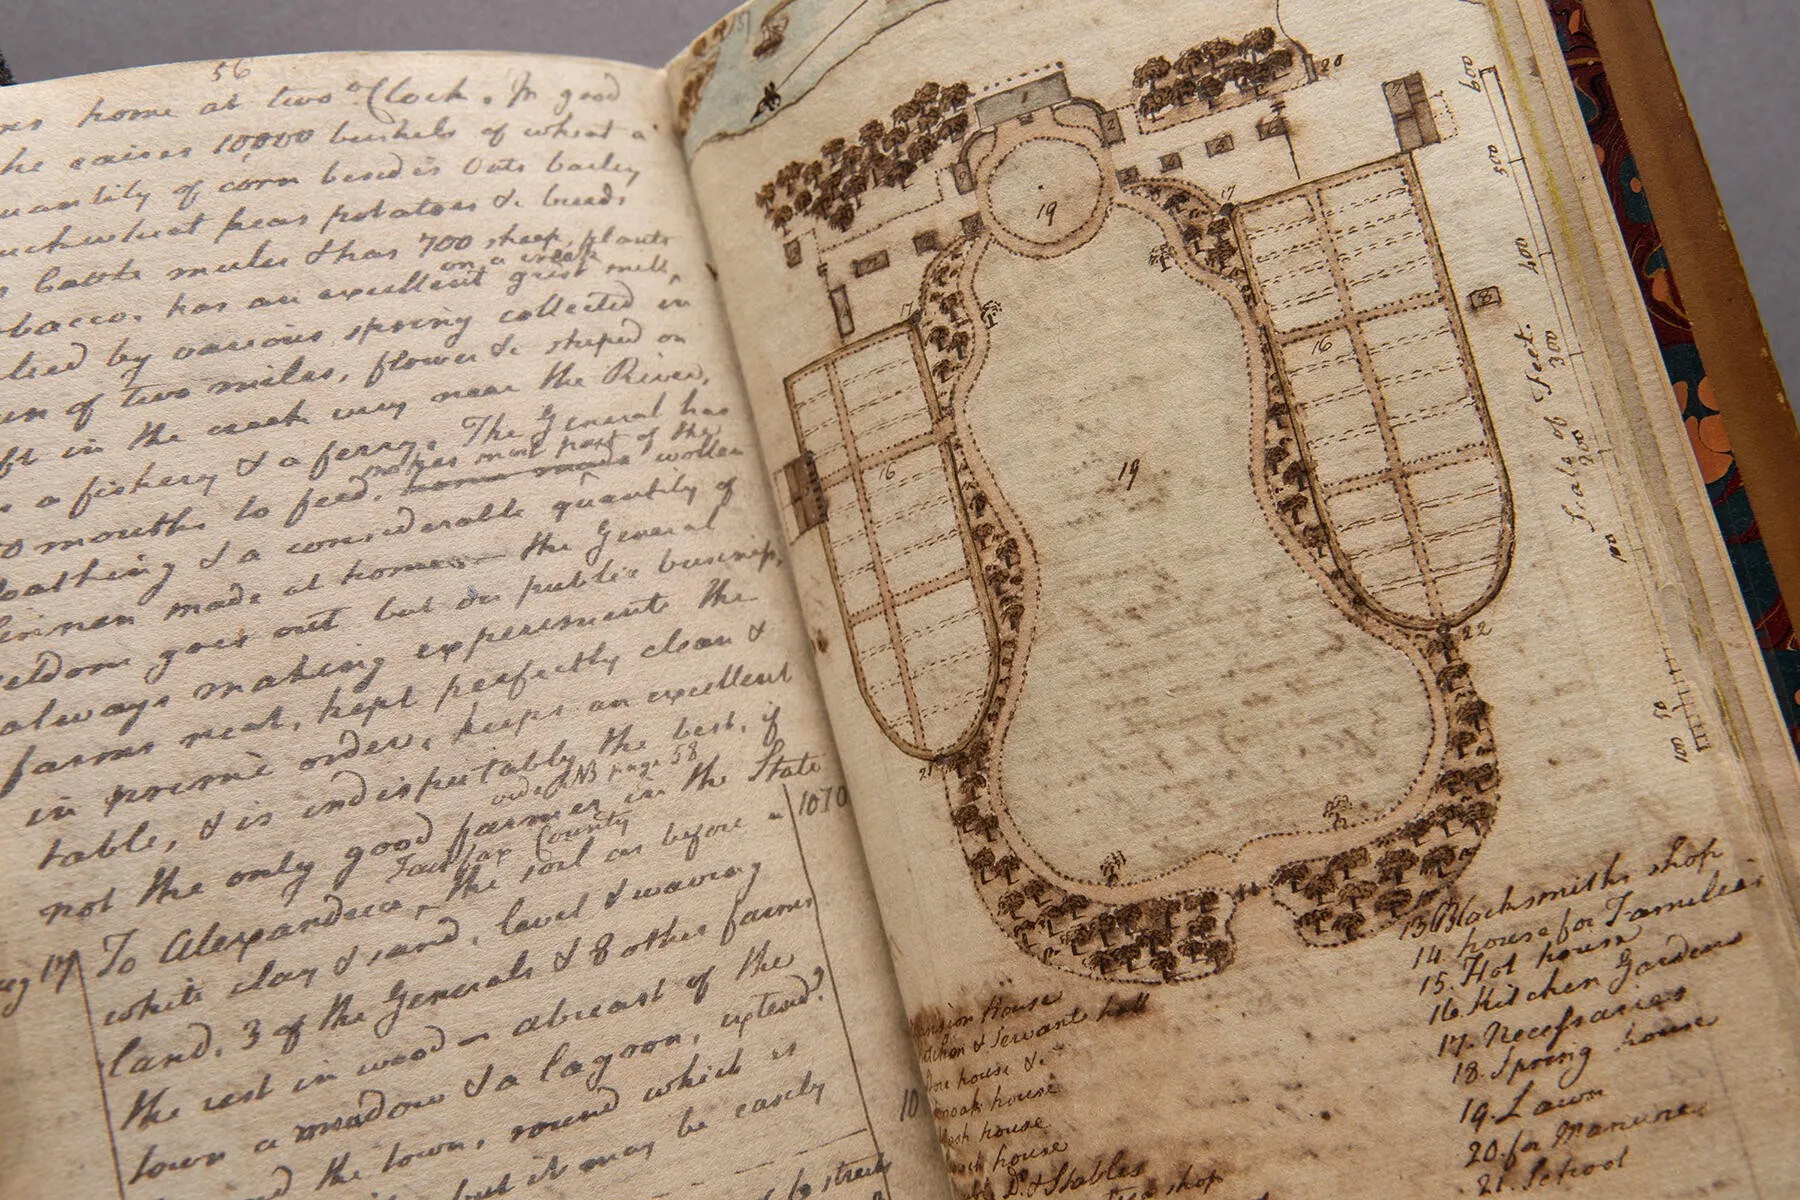 56
home at two o'Clock. In good
he raises 10,000 bushels of wheat a
quantity of corn besides Oats barley
buckwheat peas potatoes &c breeds
cattle mules & has 700 sheep, plants
on a creek
tobacco. has an excellent grist mill,
by various spring collected in
run of two miles, flower &c shiped on
in the creek very near the River,
a fishery & a ferry. The General has
makes most part of the
mouths to feed. wollen
cloathing & a considerable quantity of
linnen made at home — the General
seldom goes out but on public business,
always making experiments the
farms neat, kept perfectly clean &
in prime order, keeps an excellent
table, & is indisputably the best, if
vide NB page 58
not the only good farmer in the State
Fairfax County
To Alexandria, the soil as before a 1070
white clay & sand, level & waving
land. 3 of the Generals & 8 other farms
the rest in wood — abreast of the
town a meadow & a lagoon, extend.
the town, round which is
but it may be easily
streets
1
2
20
17
19
8
16
16
19
17
22
21
Scale of Feet.
600
500
400
300
200
100
50
100
Mansion House
Kitchen & Servant hall
house &c
house
Wash house
Coach house
Do. & Stables
shop
10
13 Blacksmiths shop
14. house for Families
15. Hot house
16. Kitchen Gardens
17. Necessaries
18. Spring house
19. Lawn
20. for Manure
21. School